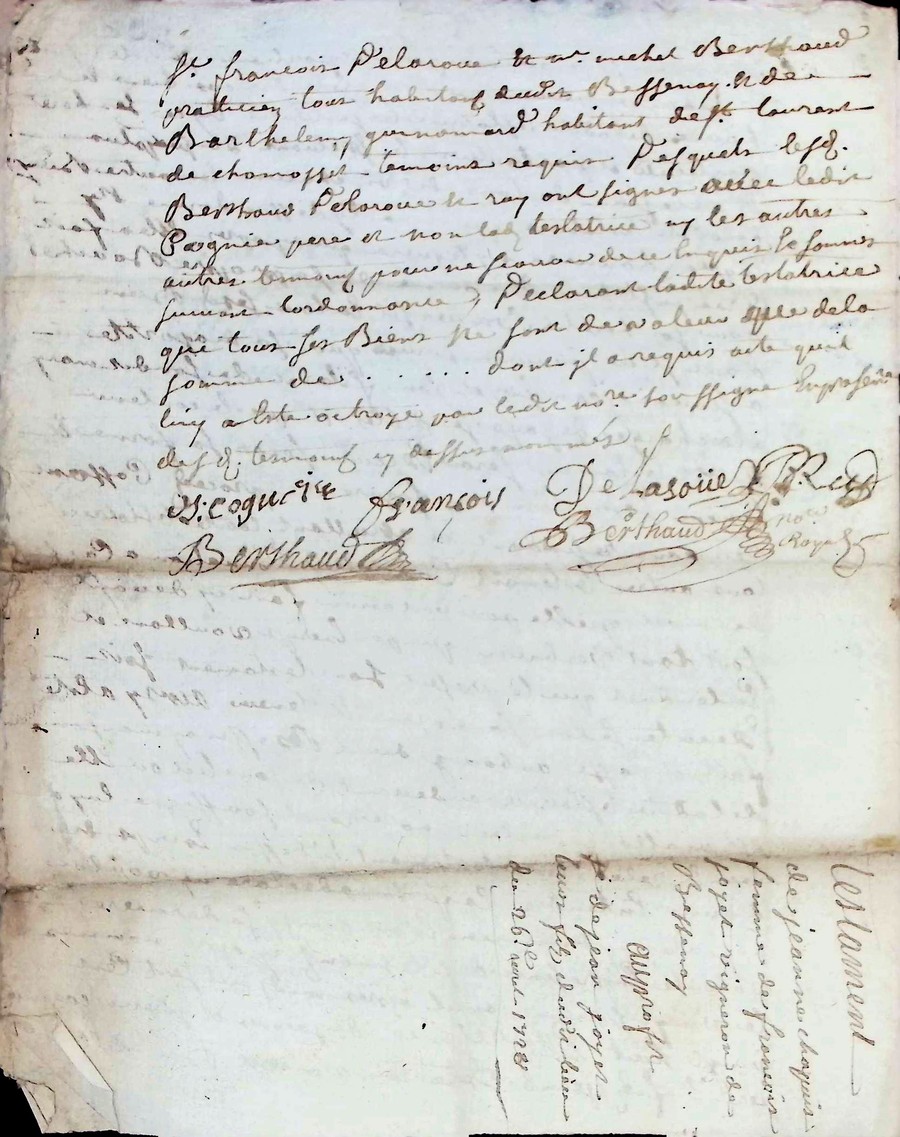 Sr. françois Delaroue & mr. michel Berthaud
praticien tous habitans dudit Bessenay & de
Barthelemy guinamard habitant de st laurent
de chamosset temoins requis Desquels lesd.
Berthaud Delaroue & ray ont signes avec ledit
Cognie pere et non lad. testatrice ny les autres
autres temoins pour ne scavoir de ce Enquis & sommes
suivant lordonnance Declarant ladite testatrice
que tous ses Biens ne sont de valeur que de la
somme de . . . . . . dont il a requis acte quil
luy a Este octroyé par ledit nore. soussigne En presence
desd. temoins cy dessus nommés
françois Delaroüe
Berthaud
Berthaud nore.
Royal
testament
de jeanne chaquis
femme de françois
joyet vigneron de
Bessenay
au profit
de jean joyet
leurs fils dudit lieu
du 26e
1728